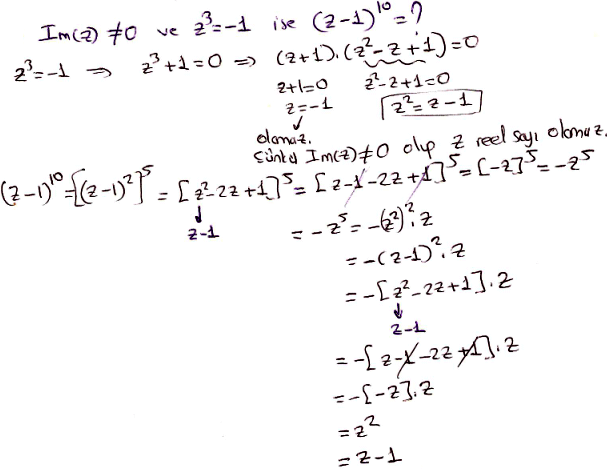 Im(z) ≠0 ve z³=-1 ise (z-1)¹⁰=?
z³=-1 ⇒ z³+1=0 ⇒ (z+1).(z²-z+1)=0
z+1=0 z²-z+1=0
z=-1 z²=z-1
olamaz.
Çünkü Im(z)≠0 olup z reel sayı olamaz.
(z-1)¹⁰=[(z-1)²]⁵ = [z²-2z+1]⁵= [z-1-2z+1]⁵=[-z]⁵=-z⁵
z-1
= -z⁵ = -(z²)².z
= -(z-1)².z
= -[z²-2z+1].z
z-1
= -[z-1-2z+1].z
= -[-z].z
= z²
= z-1